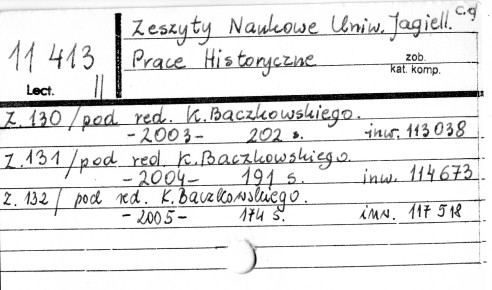 Zeszyty Naukowe Uniw. Jagiell. c.d
11 413
Prace Historyczne
zob.
kat. komp.
Lect. II
Z. 130 / pod red. K. Baczkowskiego.
- 2003 - 202 s. inw. 113038
Z. 131 / pod red. K. Baczkowskiego.
- 2004 - 191 s. inw. 114673
Z. 132 / pod red. K. Baczkowskiego.
- 2005 - 174 s. inw. 117518